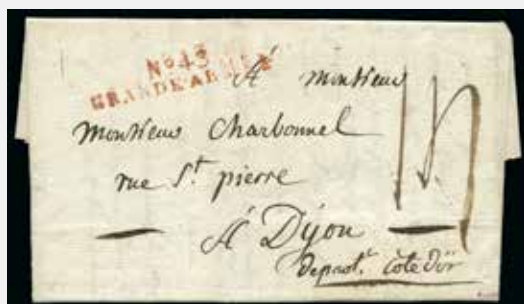 No 43
GRANDE ARMÉE
A monsieur
monsieur Charbonnel
rue St. pierre
A Dijon
depart.t Côte d'or